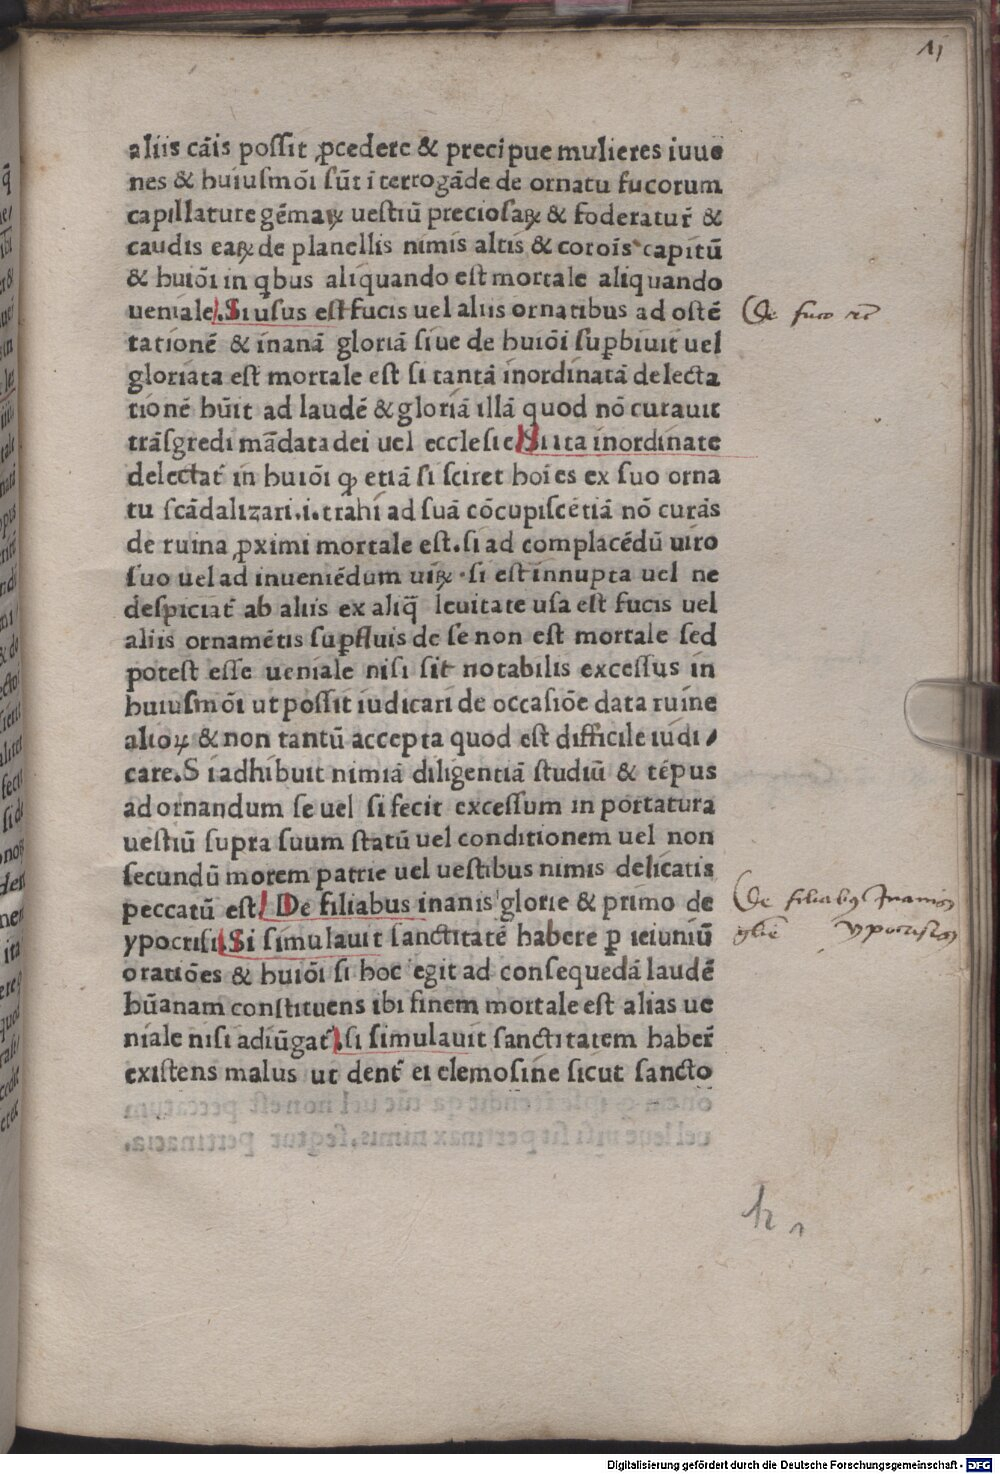 aliis cāis possit ꝓcedere & precipue mulieres iuue
nes & huiusmōi sūt ī terrogāde de ornatu fucorum
capillature gēmaꝝ uestiū preciosaꝝ & foderatur̄ &
caudis eaꝝ de planellis nimis altis & corois capitū
& huiōi in qbus aliquando est mortale aliquando
ueniale. Si usus est fucis uel aliis ornatibus ad ostē
tationē & inanā gloriā siue de huiōi suꝑbiuit uel
gloriata est mortale est si tantā inordinatā delecta
tionē hūit ad laudē & gloriā illā quod nō curauit
trāsgredi mādata dei uel ecclesie Si ita inordinate
delectat̄ in huiōi ꝙ etiā si sciret hoīes ex suo orna
tu scādalizari.i.trahi ad suā cōcupiscētiā nō curās
de ruina ꝓximi mortale est. si ad complacēdū uiro
suo uel ad inueniēdum uiꝝ. si est innupta uel ne
despiciat̄ ab aliis ex aliq̄ leuitate usa est fucis uel
aliis ornamētis suꝑfluis de se non est mortale sed
potest esse ueniale nisi sit notabilis excessus in
huiusmōi ut possit iudicari de occasiōe data ruine
alioꝝ & non tantū accepta quod est difficile iudi /
care. Si adhibuit nimiā diligentiā studiū & tēpus
ad ornandum se uel si fecit excessum in portatura
uestiū supra suum statū uel conditionem uel non
secundū morem patrie uel uestibus nimis delicatis
peccatū est. De filiabus inanis glorie & primo de
ypocrisi. Si simulauit sanctitatē habere ꝑ ieiuniū
oratiōes & huiōi si hoc egit ad consequedā laudē
hūanam constituens ibi finem mortale est alias ue
niale nisi adiūgat̄. si simulauit sanctitatem haber̄
existens malus ut dent̄ ei elemosine sicut sancto
De fuco
De filiabus Inanis
glīe ypocrisis
Digitalisierung gefördert durch die Deutsche Forschungsgemeinschaft - DFG